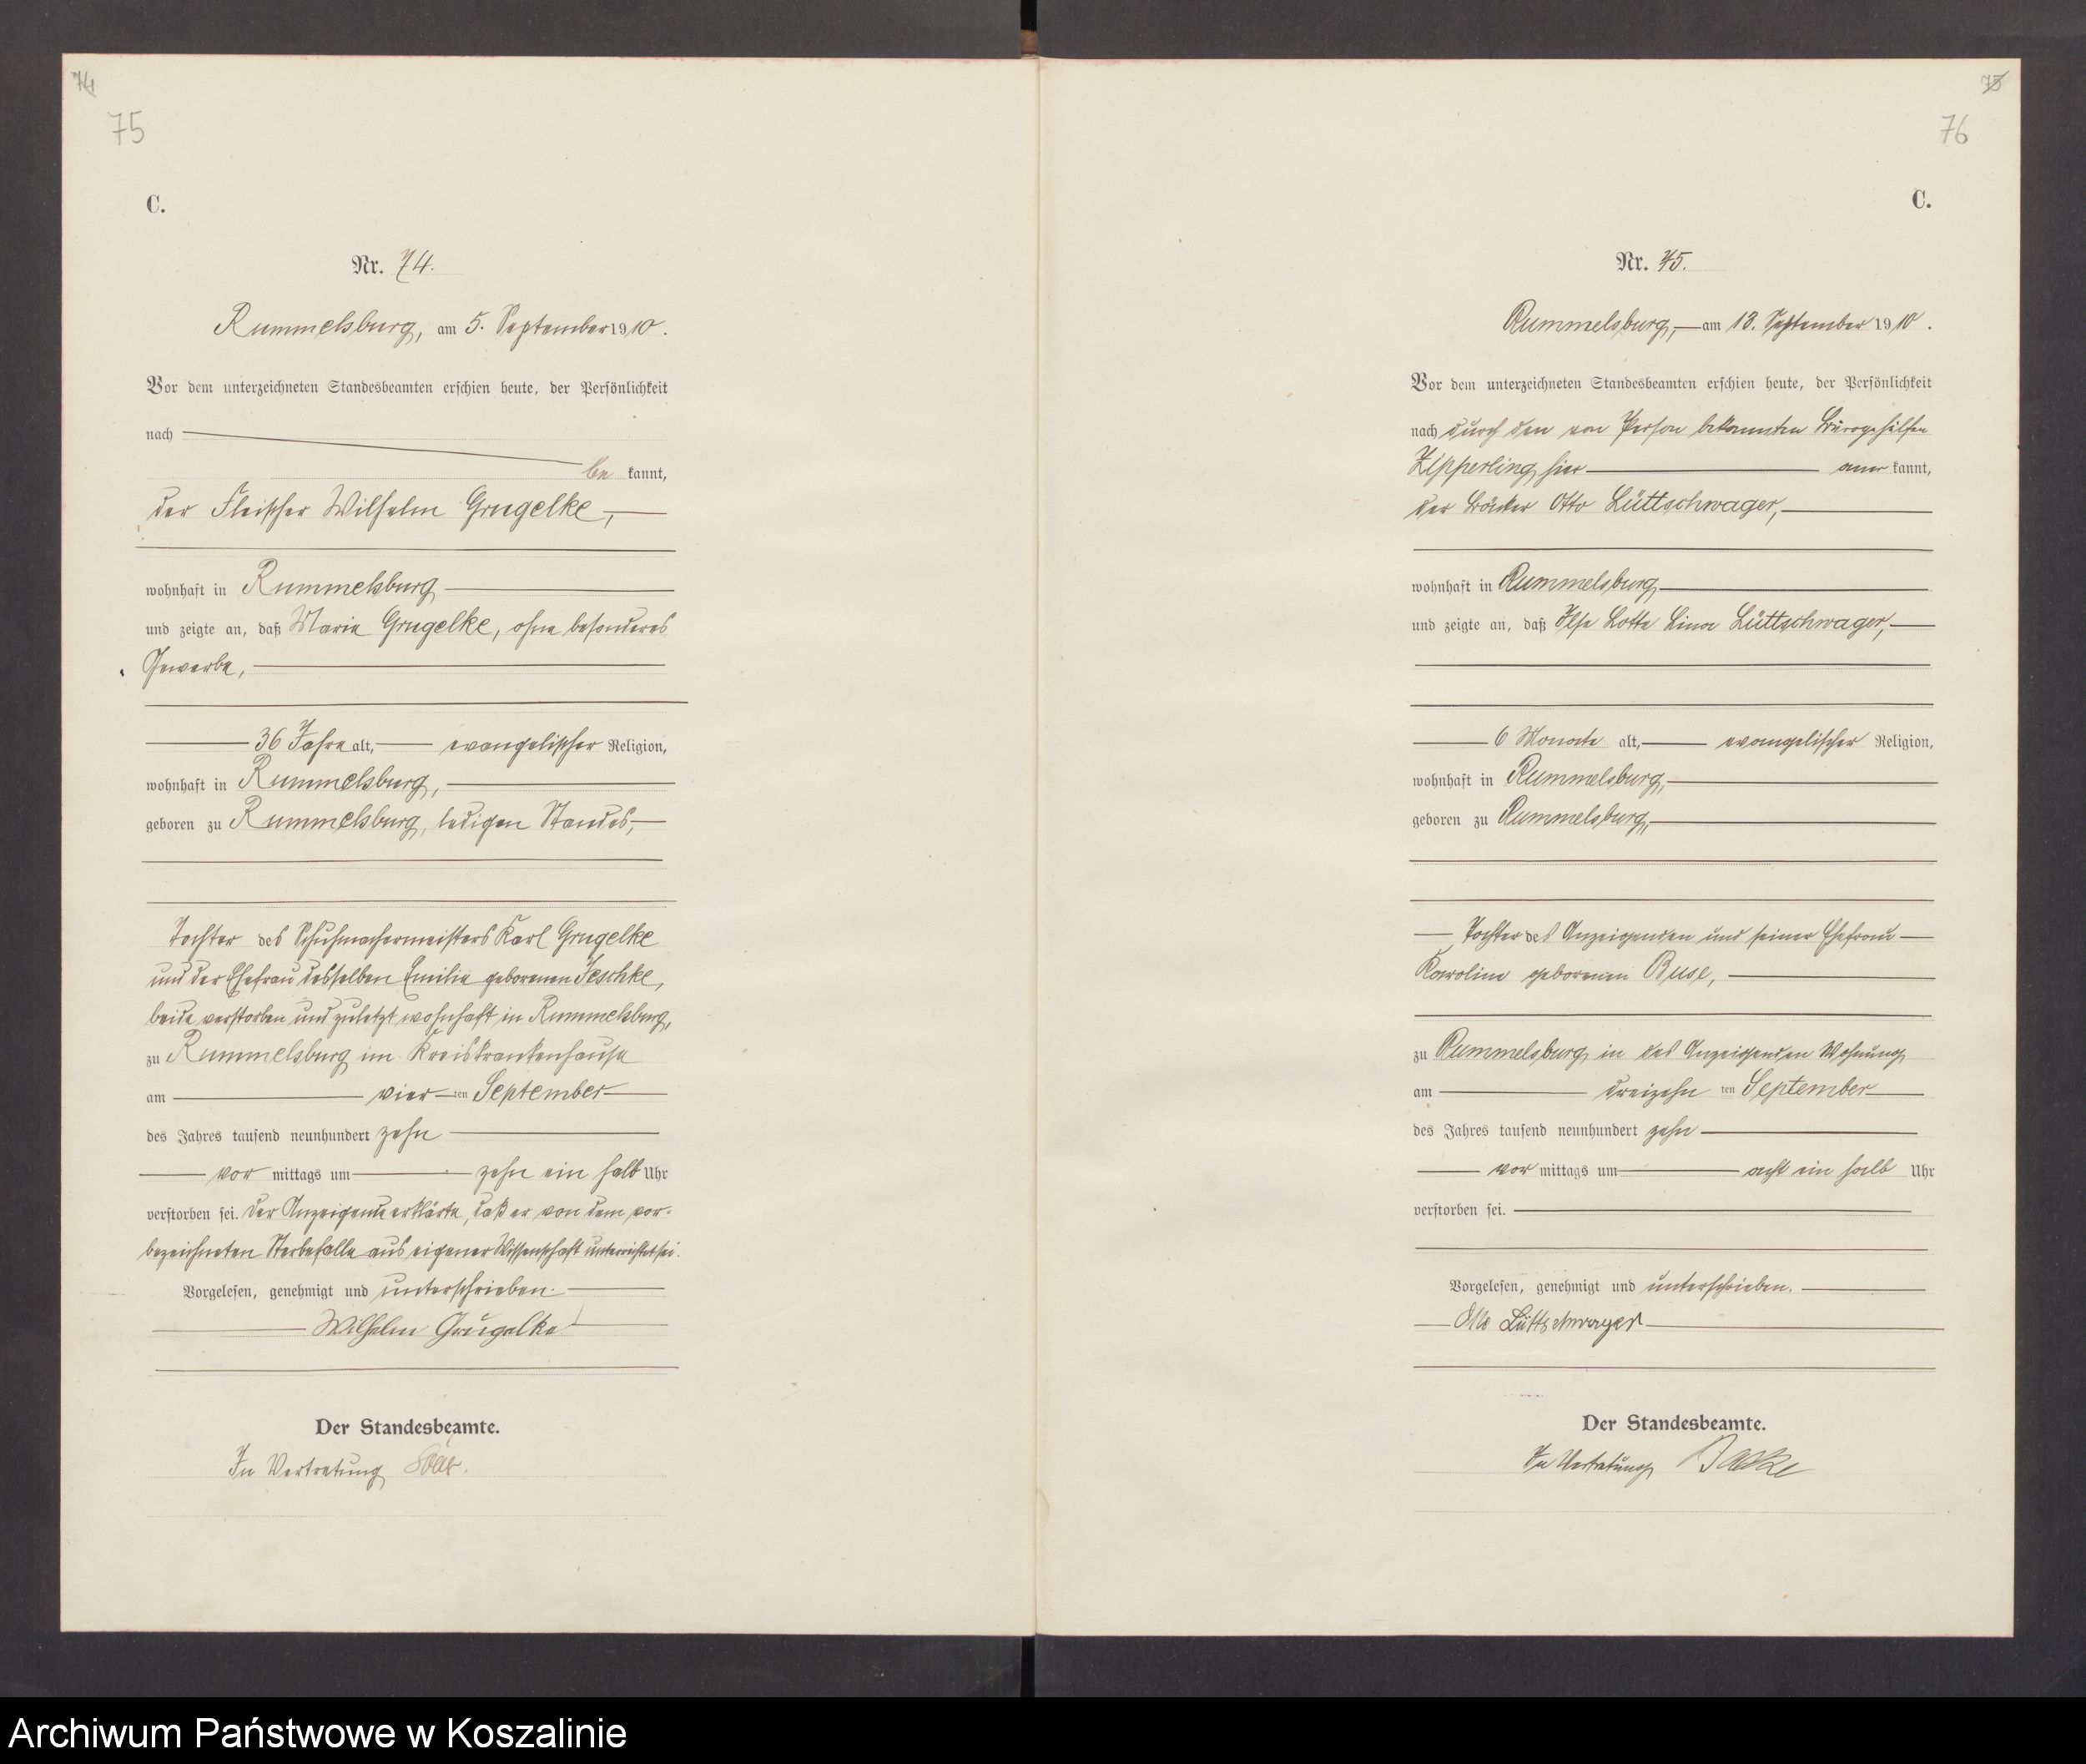 74
75
C.
Nr. 74.
Rummelsburg, am 5. September 1910.
Vor dem unterzeichneten Standesbeamten erschien heute, der Persönlichkeit
nach
be kannt,
der Fleischer Wilhelm Grugelke,
wohnhaft in Rummelsburg
und zeigte an, daß Marie Grugelke, ohne besonderes
Gewerbe,
36 Jahre alt, evangelischer Religion,
wohnhaft in Rummelsburg,
geboren zu Rummelsburg, ledigen Standes,
Tochter des Schuhmachermeisters Karl Grugelke
und der Ehefrau desselben Emilie geborenen Jeschke,
beide verstorben und zuletzt wohnhaft in Rummelsburg,
zu Rummelsburg im Kreiskrankenhause
am vier ten September
des Jahres tausend neunhundert zehn
vor mittags um zehn ein halb Uhr
verstorben sei. Der Anzeigende erklärte, daß er von dem vor-
bezeichneten Sterbefalle aus eigener Wissenschaft unterrichtet sei.
Vorgelesen, genehmigt und unterschrieben.
Wilhelm Grugelke
Der Standesbeamte.
In Vertretung
75
76
C.
Nr. 75.
Rummelsburg, am 13. September 1910.
Vor dem unterzeichneten Standesbeamten erschien heute, der Persönlichkeit
nach durch den von Person bekannten Bürogehilfen
Zipperling hier aner kannt,
der Bäcker Otto Lüttschwager,
wohnhaft in Rummelsburg
und zeigte an, daß Ilse Lotte Lina Lüttschwager,
6 Monate alt, evangelischer Religion,
wohnhaft in Rummelsburg,
geboren zu Rummelsburg,
Tochter des Anzeigenden und seiner Ehefrau
Karoline geborenen Buse,
zu Rummelsburg in des Anzeigenden Wohnung
am dreizehn ten September
des Jahres tausend neunhundert zehn
vor mittags um acht ein halb Uhr
verstorben sei.
Vorgelesen, genehmigt und unterschrieben.
Otto Lüttschwager
Der Standesbeamte.
In Vertretung
Archiwum Państwowe w Koszalinie